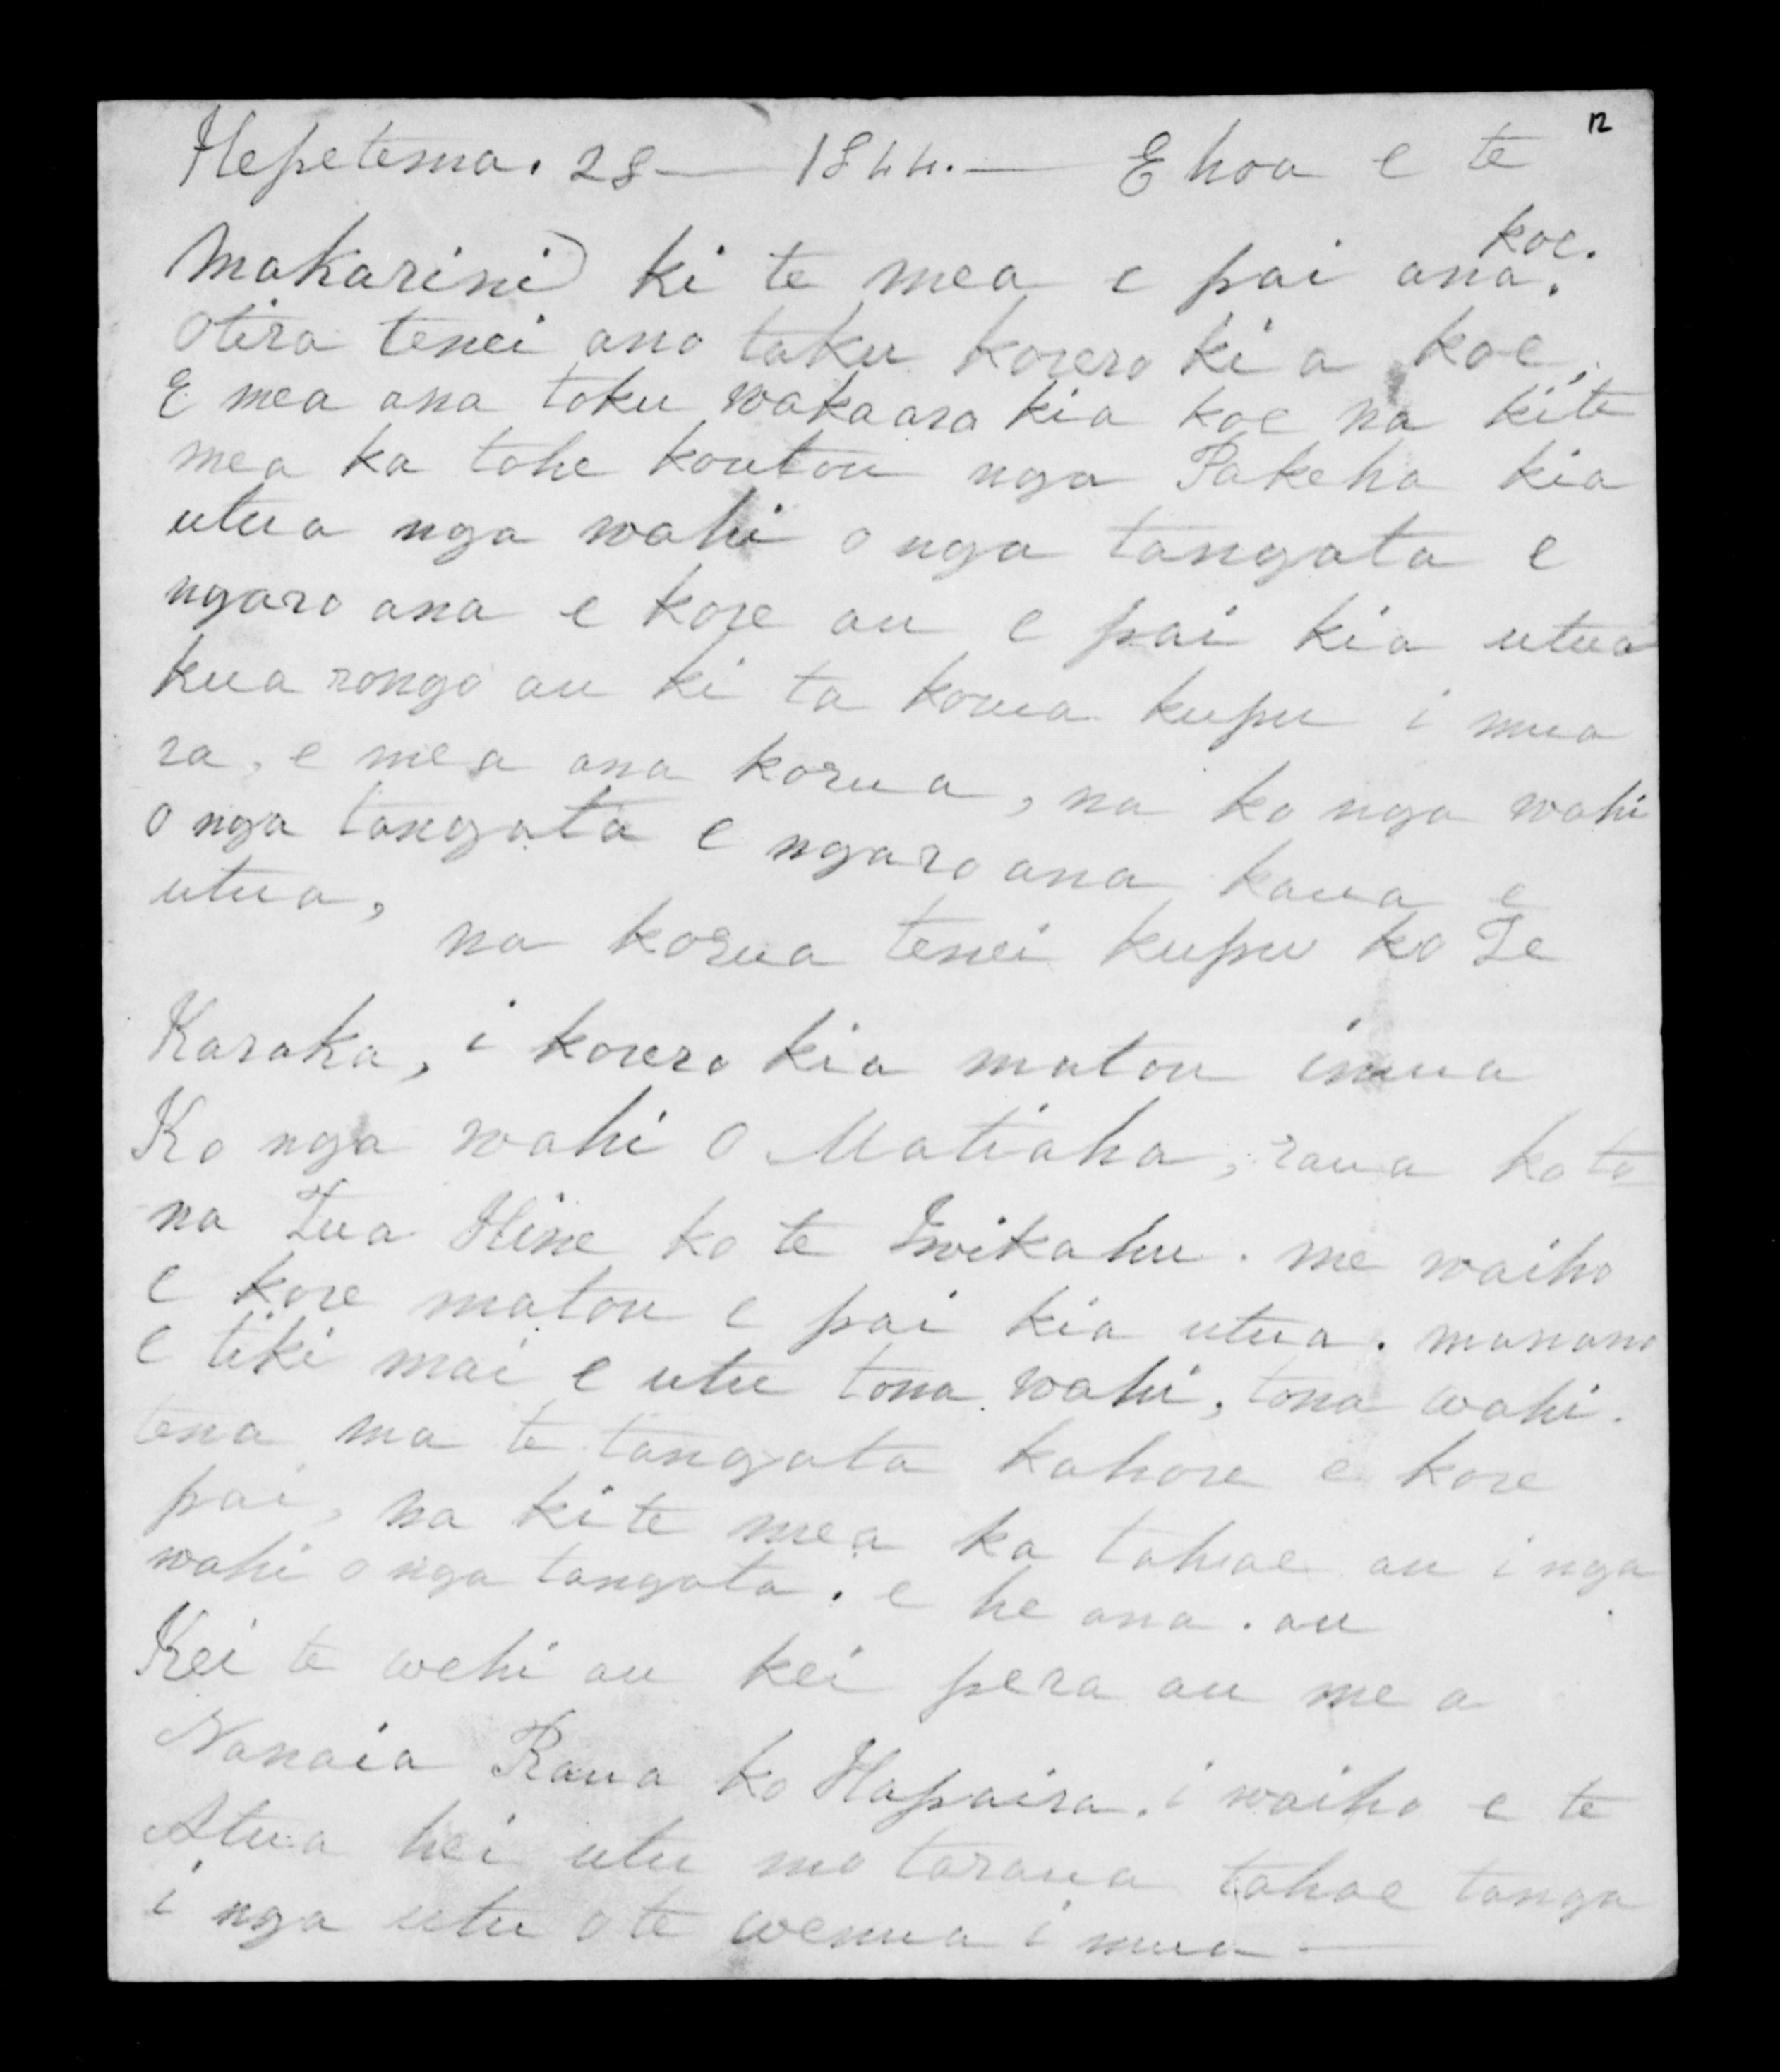 12
Hepetema. 28 — 1844. — E hoa e te
Makarini) ki te mea e pai ana koe.
Otira tenei ano taku korero ki a koe.
E mea ana toku wakaaro kia koe na kite
mea ka tohe koutou nga Pakeha kia
utua nga wahi o nga tangata e
ngaro ana e kore au e pai kia utua
kua rongo au ki ta korua kupu i mua
ra, e mea ana korua, na ko nga wahi
o nga tangata e ngaro ana kaua e
utua,
na korua tenei kupu ko Te
Karaka, i korero kia matou imua
Ko nga wahi o Matiaha, raua ko to
na Tua Hine ko te Iwikahu. me waiho
e kore matou e pai kia utua. manano
e tiki mai e utu tona wahi, tona wahi.
tena ma te tangata kahore e kore
pai, na kite mea ka tahae au i nga
wahi o nga tangata. e he ana. au
Kei te wehi au kei pera au me a
Nanaia Raua ko Hapaira. i waiho e te
Atua hei utu mo taraua tahae tanga
i nga utu o te wenua i mua —